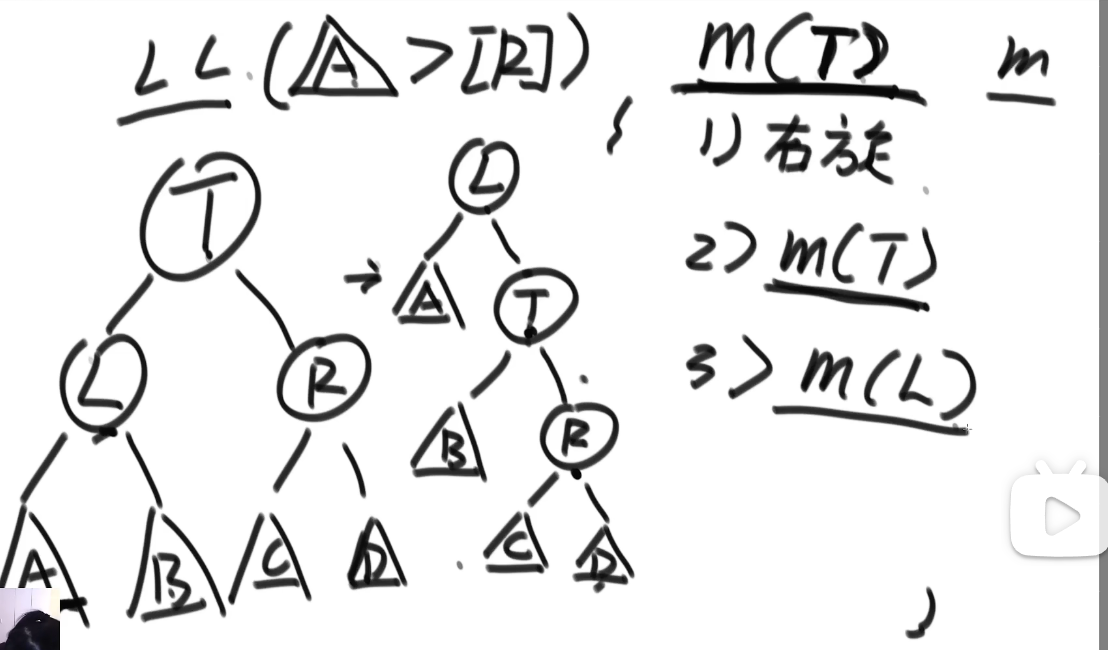 LL (A > [R])
m(T)
m
{
1) 右旋
2> m(T)
3> m(L)
}
T
L
R
A
B
C
D
→
L
A
T
B
R
C
D